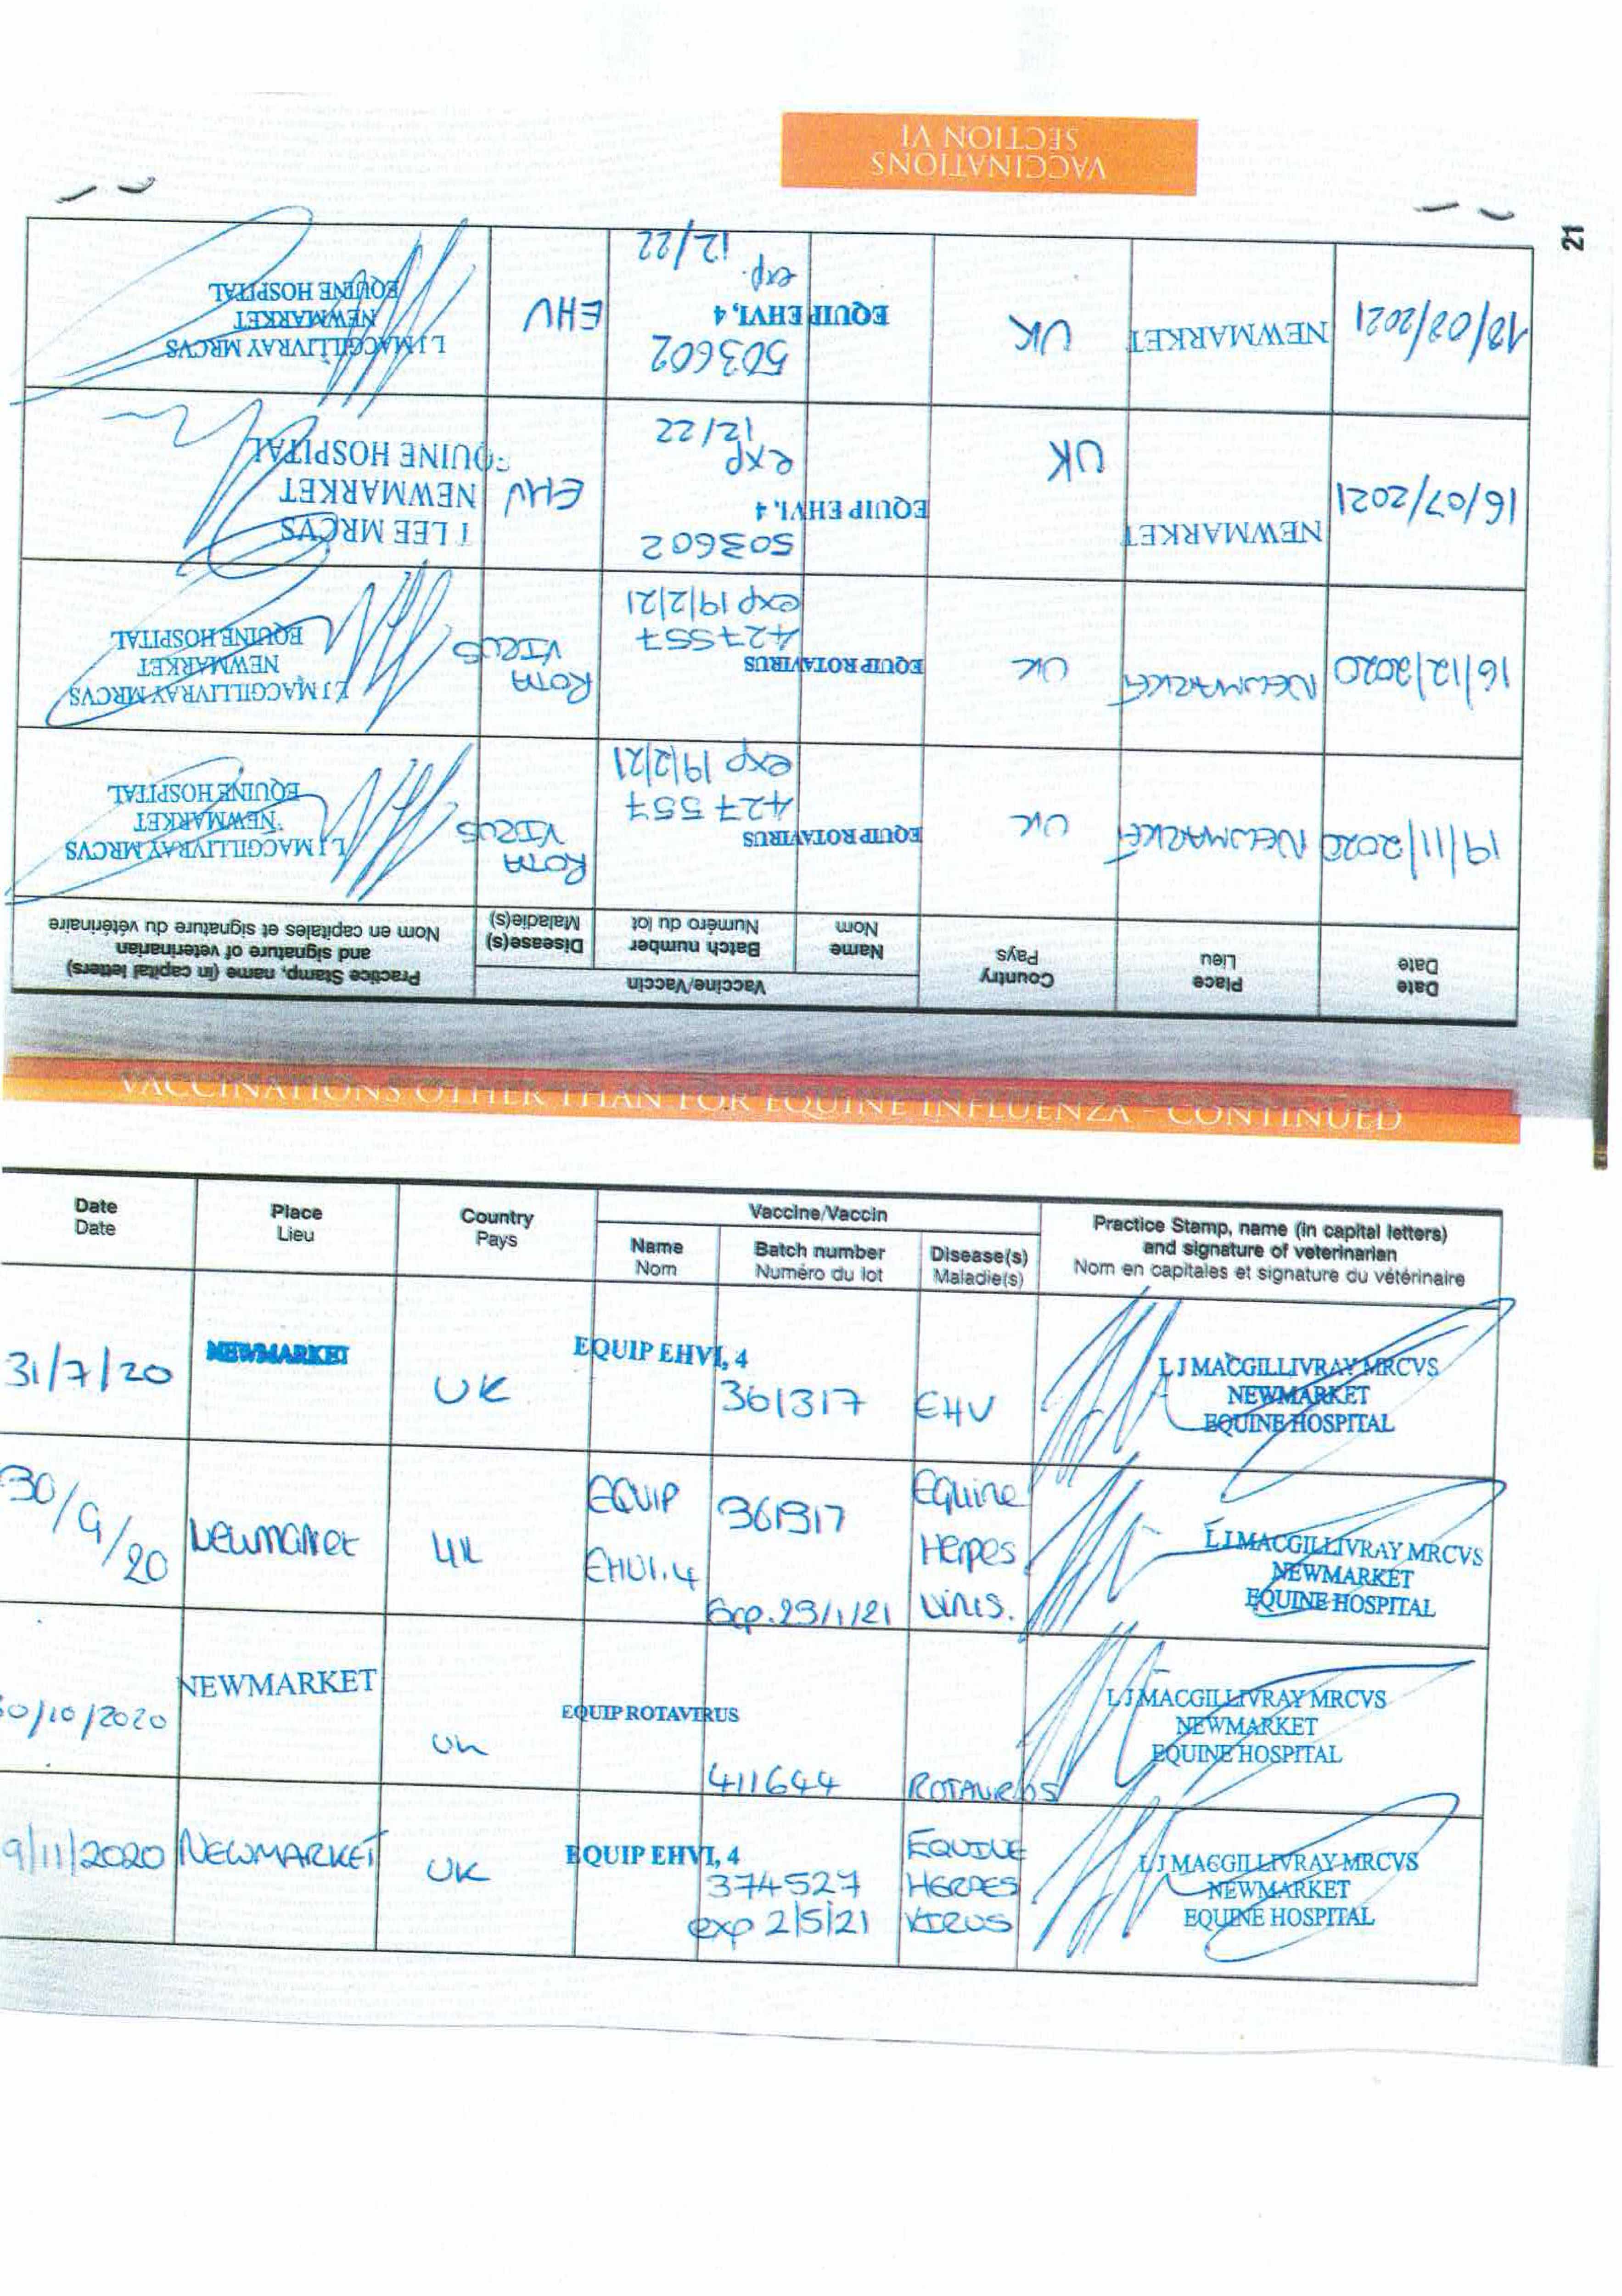 VACCINATIONS
SECTION VI
21
Date
Date
Place
Lieu
Country
Pays
Vaccine/Vaccin
Name
Nom
Batch number
Numéro du lot
Disease(s)
Maladie(s)
Practice Stamp, name (in capital letters)
and signature of veterinarian
Nom en capitales et signature du vétérinaire
19/11/2020 NEWMARKET UK EQUIP ROTAVIRUS
427557
exp 19/2/21
ROTA
VIRUS
L J MACGILLIVRAY MRCVS
NEWMARKET
EQUINE HOSPITAL
16/12/2020 NEWMARKET UK EQUIP ROTAVIRUS
427557
exp 19/2/21
ROTA
VIRUS
L J MACGILLIVRAY MRCVS
NEWMARKET
EQUINE HOSPITAL
16/07/2021 NEWMARKET UK
503602
EQUIP EHVI, 4
exp
12/22
EHV
LEE MRCVS
NEWMARKET
QUINE HOSPITAL
NEWMARKET UK
503602
EQUIP EHVI, 4
exp.
12/22
EHV
L J MACGILLIVRAY MRCVS
NEWMARKET
EQUINE HOSPITAL
VACCINATIONS OTHER THAN FOR EQUINE INFLUENZA - CONTINUED
Date
Date
Place
Lieu
Country
Pays
Vaccine/Vaccin
Name
Nom
Batch number
Numéro du lot
Disease(s)
Maladie(s)
Practice Stamp, name (in capital letters)
and signature of veterinarian
Nom en capitales et signature du vétérinaire
31/7/20 NEWMARKET UK EQUIP EHVI, 4
361317
EHV
L J MACGILLIVRAY MRCVS
NEWMARKET
EQUINE HOSPITAL
30/9/20 Newmarket UK
EQUIP
EHVI.4
361317
Exp. 29/1/21
Equine
Herpes
Virus.
L J MACGILLIVRAY MRCVS
NEWMARKET
EQUINE HOSPITAL
0/10/2020 NEWMARKET UK EQUIP ROTAVIRUS
411644
ROTAVIRUS
L J MACGILLIVRAY MRCVS
NEWMARKET
EQUINE HOSPITAL
9/11/2020 NEWMARKET UK EQUIP EHVI, 4
374527
exp 2/5/21
EQUINE
HERPES
VIRUS
L J MACGILLIVRAY MRCVS
NEWMARKET
EQUINE HOSPITAL